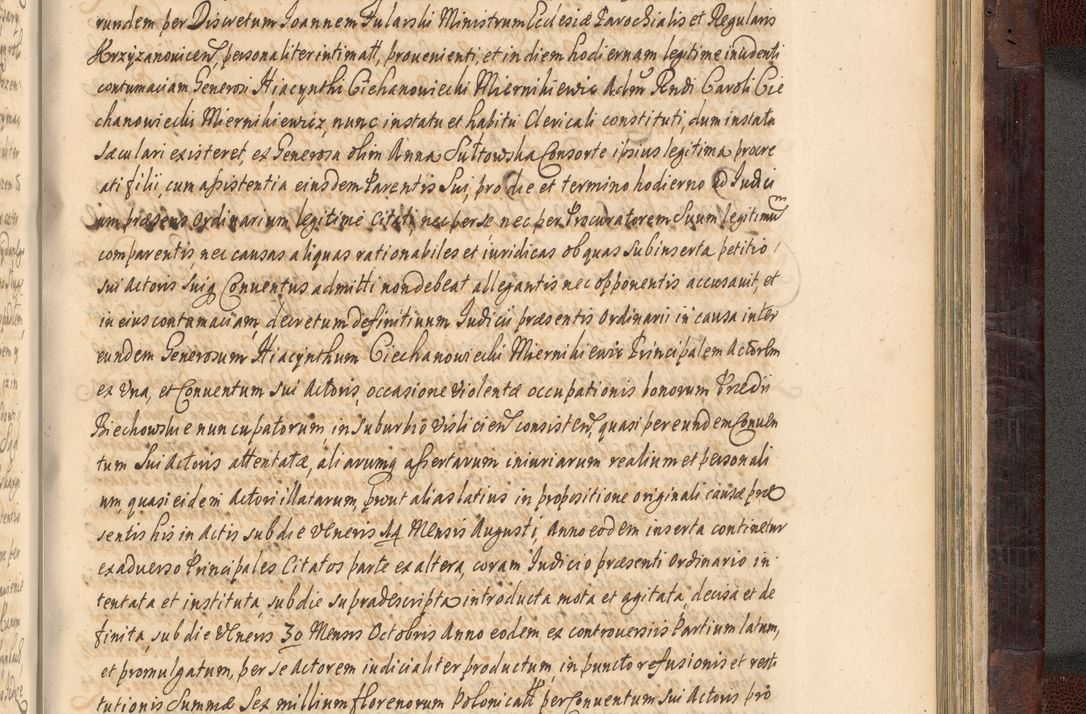 rundem per Discretum Joannem Fularski Ministrum Ecclesiæ Parochialis et Regularis
Krzyzanowicen, personaliter intimatt, prouenienti, et in diem hodiernam legitime incidenti
contumaciam Generosi Hiacynthi Ciehanowiecki Miernikiewic Adm Rndi Caroli Cie
chanowiecki Miernikiewicz, nunc in statu et habitu Clericali constituti, dum in statu
sæculari existeret, ex Generosa olim Anna Sułtowska Consorte ipsius legitima procre
ati filii, cum assistentia eiusdem Parentis Sui, pro die et termino hodierno ad Judici
um præsens ordinarium legitime Citati, nec per se nec per Procuratorem Suum legitimū
comparentis, nec causas aliquas rationabiles et iuridicas ob quas subinserta petitio
sui Actoris Suiq Conuentus admitti non debeat allegantis nec opponentis accusauit, et
in eius contumaciam, decretum definitiuum Iudicii præsentis ordinarii in causa inter
eundem Generosum Hiacynthum Ciechanowiecki Miernikiewic Principalem Actorem
ex Vna, et Conuentum sui Actoris, occasione Violentæ occupationis bonorum Prædii
Biechowskie nuncupatorum, in suburbio Vislicien consisten, quasi per eundem Conuen
tum Sui Actoris attentatæ, aliarumq assertarum iniuriarum realium et personali
um, quasi eidem Actori illatarum, prout alias latius in propositione originali causæ præ
sentis his in Actis sub die Veneris 14 Mensis Augusti, Anno eodem inserta continetur
ex aduerso Principales Citatos parte ex altera, coram Iudicio præsenti ordinario in
tentata et instituta, sub die supradescripta introducta mota et agitata, decisa et de
finita, sub die Veneris 30 Mensis Octobris Anno eodem ex controuersiis Partium latum,
et promulgatum, per se Actorem iudicialiter productum, in puncto refusionis et resti
tutionis Summæ Sex millium florenorum Polonicatt per Conuentum sui Actoris pro